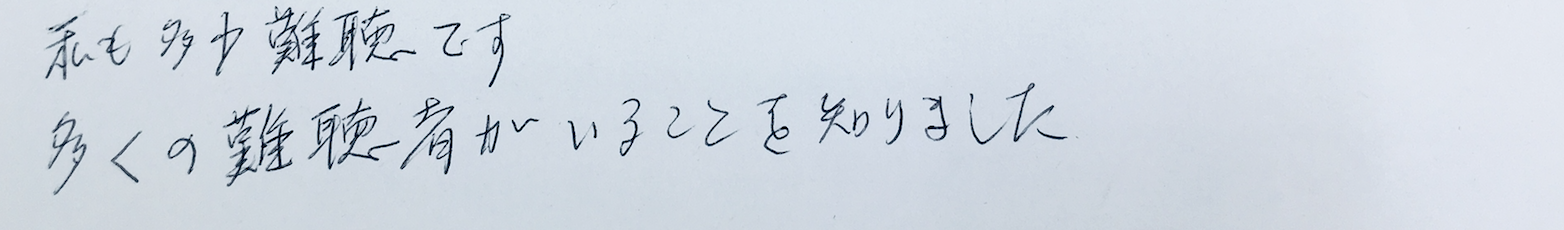 私も多少難聴です
多くの難聴者がいることを知りました